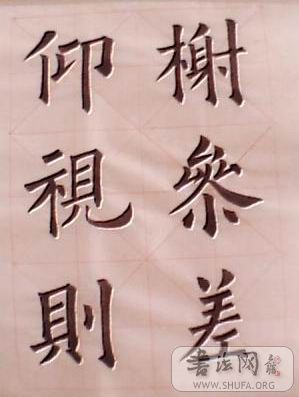 榭參差
仰視則
書法网
www.SHUFA.ORG